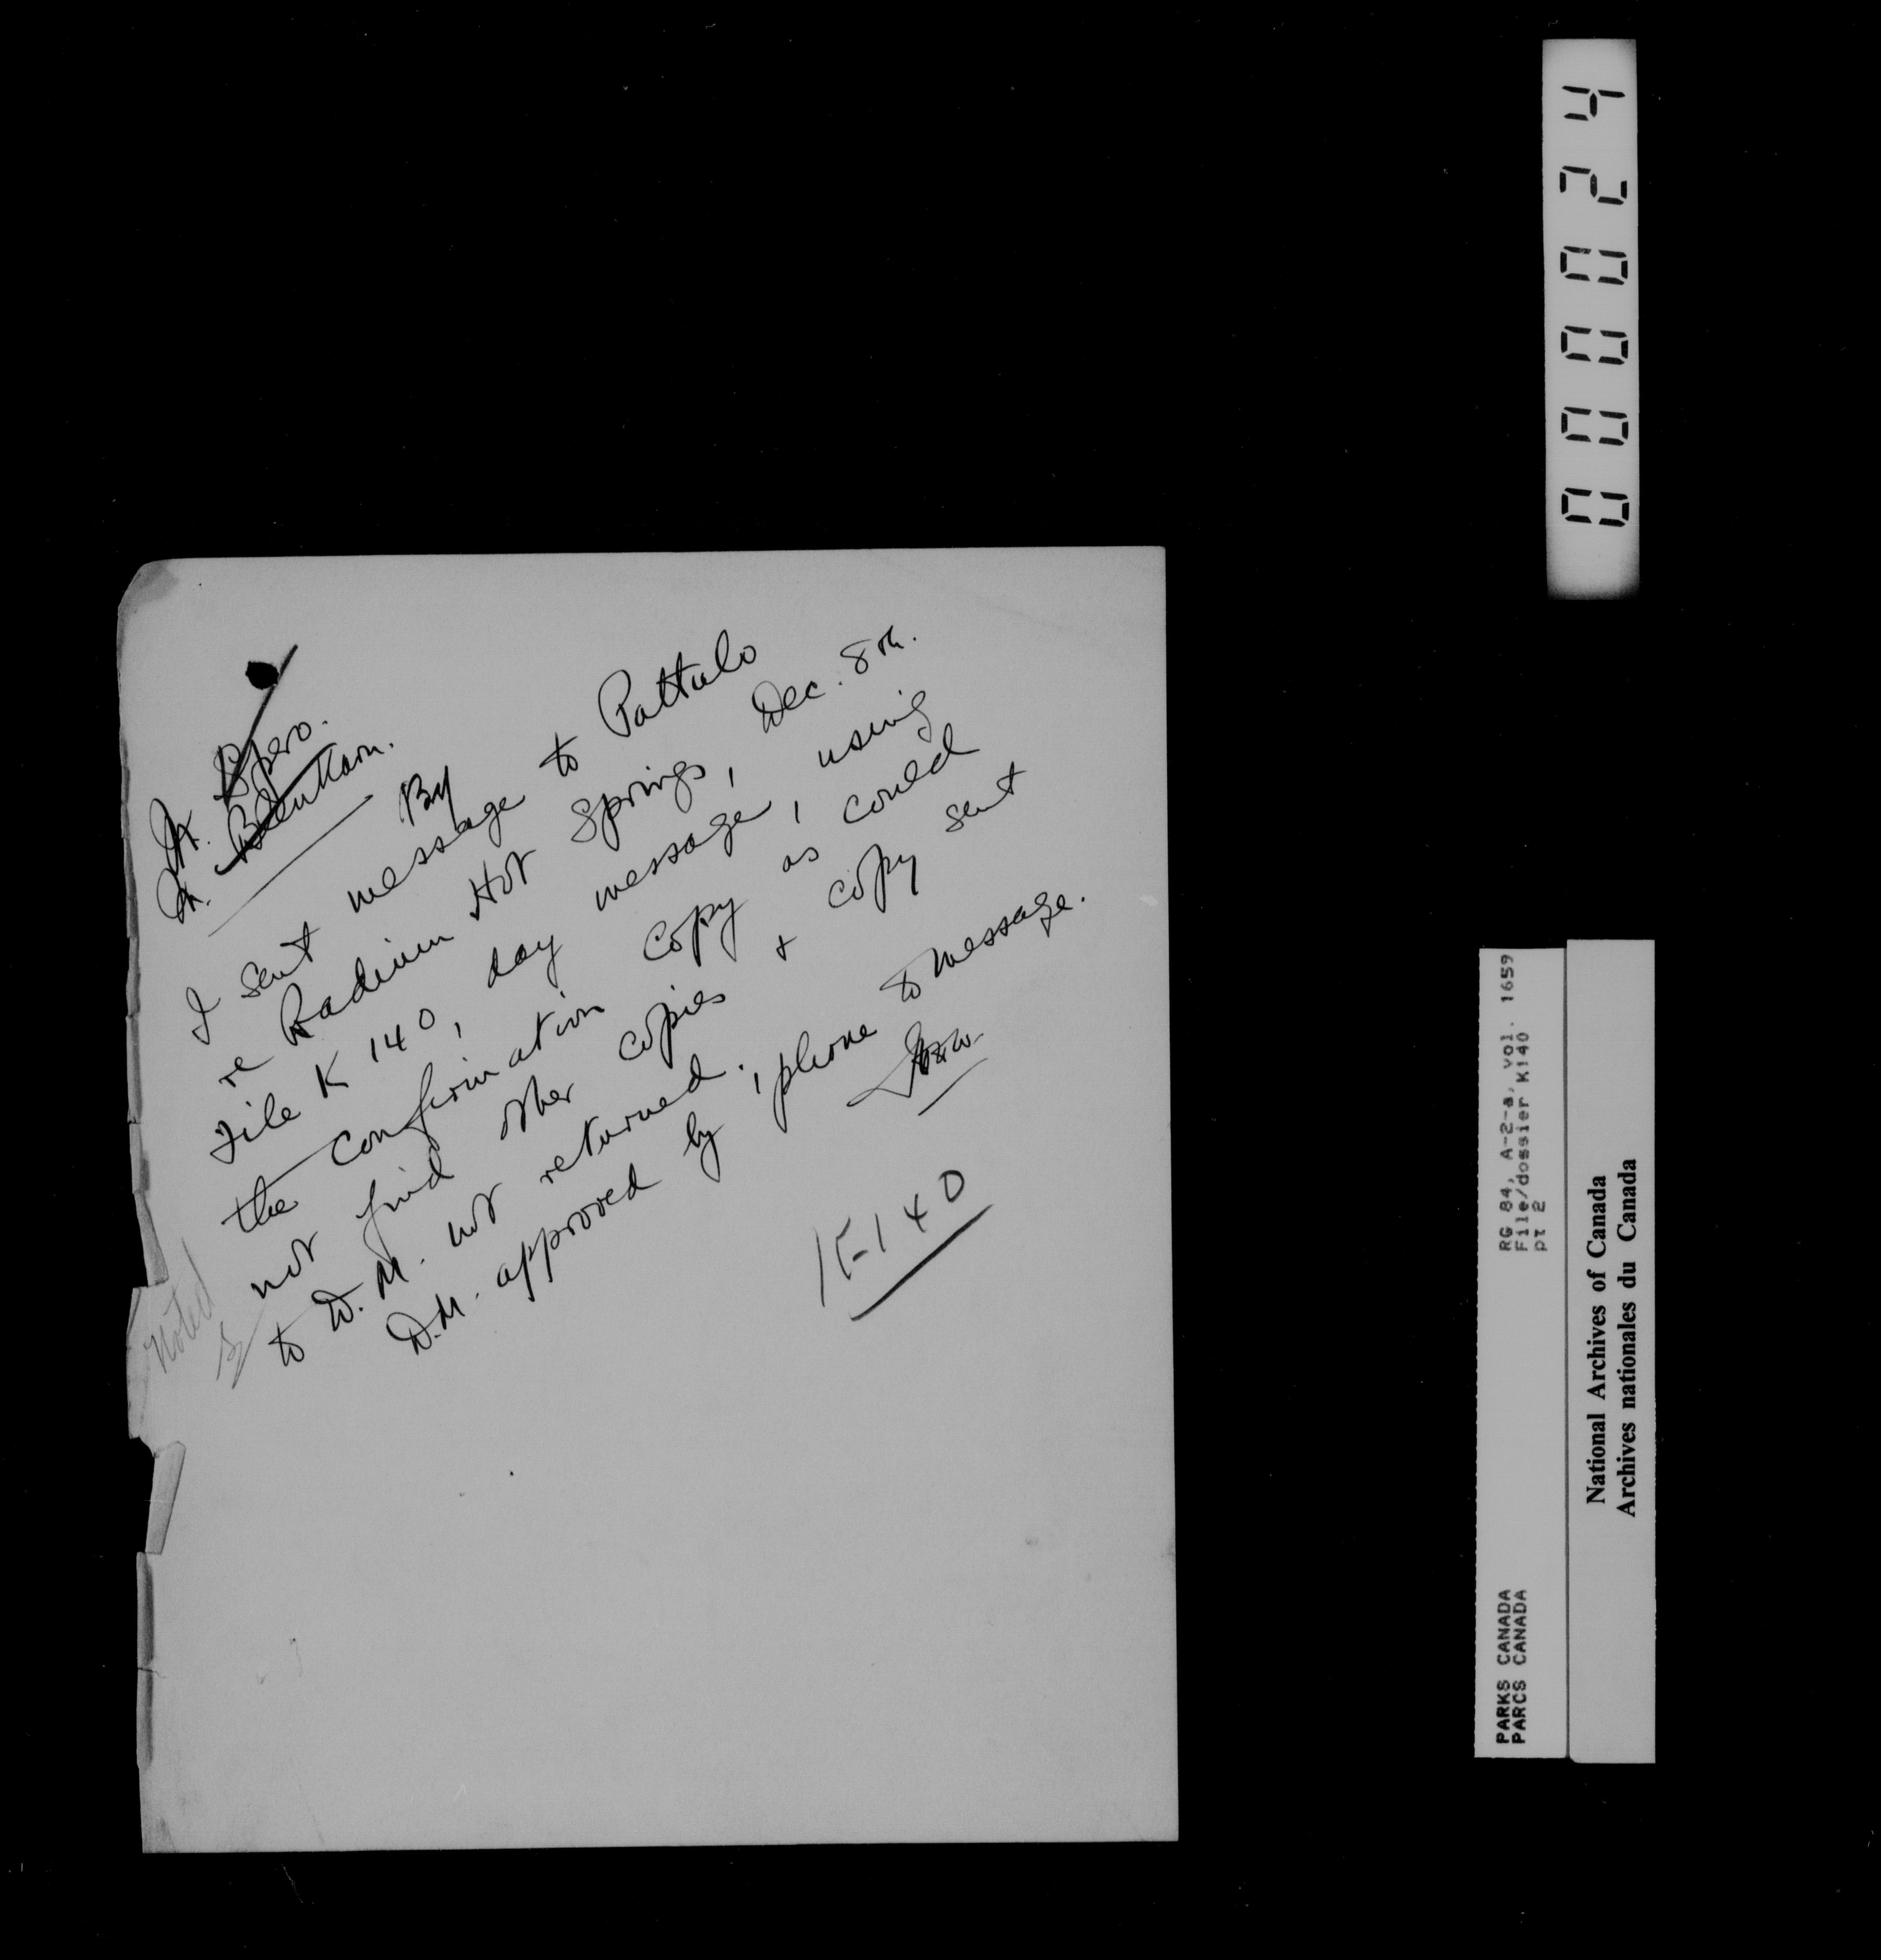 Mr. Spero.
Mr.
I sent message to Pattulo
re Radium Hot Springs, Dec. 8th.
File K 140, day message, using
the confirmation copy as could
not find other copies & copy sent
to D.M. not returned.
D.M. approved by phone to message.
K-140
Noted
000024
RG 84, A-2-a, vol. 1659
File/dossier K140
pt 2
PARKS CANADA
PARCS CANADA
National Archives of Canada
Archives nationales du Canada